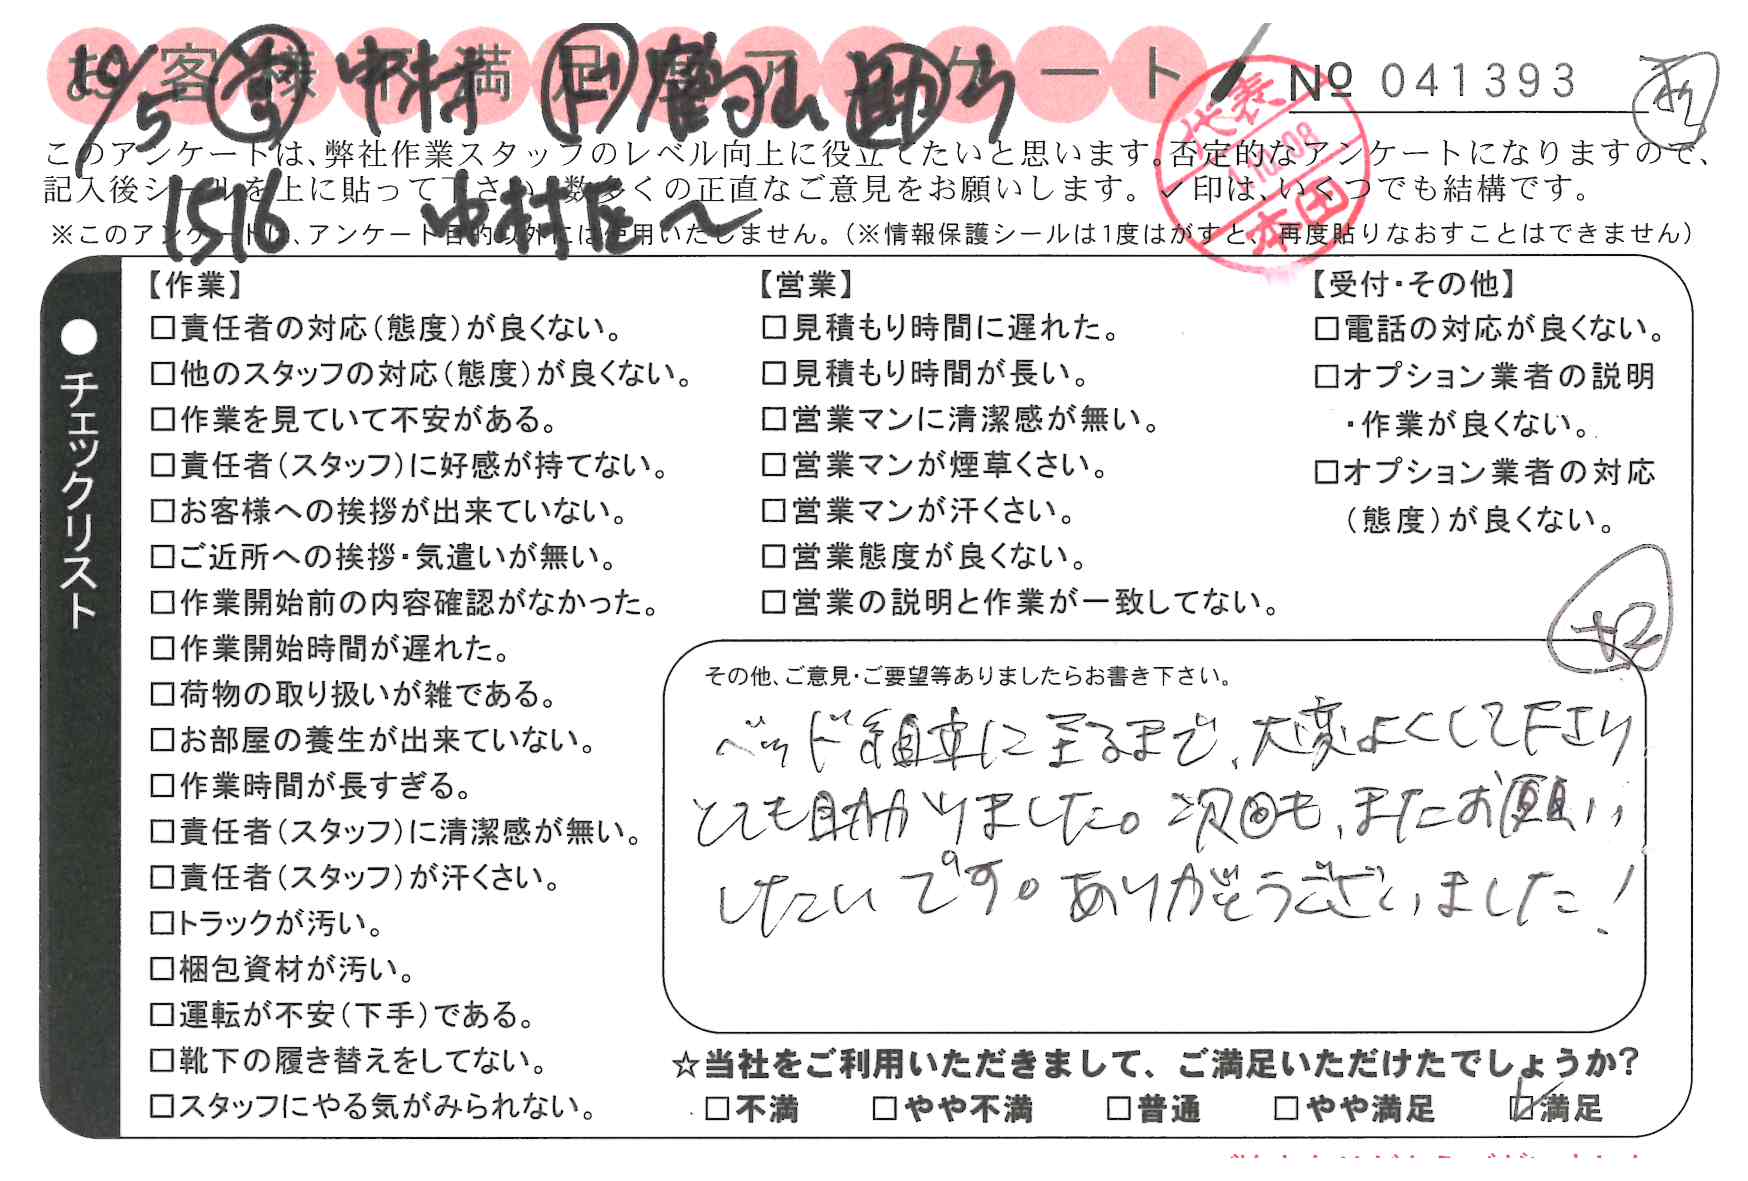 お客様不満足度アンケート
№ 041393
10/5 営 中村 鶴山 助
代表
1.10.08
本田
このアンケートは、弊社作業スタッフのレベル向上に役立てたいと思います。否定的なアンケートになりますので、
記入後シールを上に貼って下さい。数多くの正直なご意見をお願いします。✓印は、いくつでも結構です。
1516 中村
※このアンケートは、アンケート目的以外には使用いたしません。(※情報保護シールは1度はがすと、再度貼りなおすことはできません)
●チェックリスト
【作業】
□責任者の対応(態度)が良くない。
□他のスタッフの対応(態度)が良くない。
□作業を見ていて不安がある。
□責任者(スタッフ)に好感が持てない。
□お客様への挨拶が出来ていない。
□ご近所への挨拶・気遣いが無い。
□作業開始前の内容確認がなかった。
□作業開始時間が遅れた。
□荷物の取り扱いが雑である。
□お部屋の養生が出来ていない。
□作業時間が長すぎる。
□責任者(スタッフ)に清潔感が無い。
□責任者(スタッフ)が汗くさい。
□トラックが汚い。
□梱包資材が汚い。
□運転が不安(下手)である。
□靴下の履き替えをしてない。
□スタッフにやる気がみられない。
【営業】
□見積もり時間に遅れた。
□見積もり時間が長い。
□営業マンに清潔感が無い。
□営業マンが煙草くさい。
□営業マンが汗くさい。
□営業態度が良くない。
□営業の説明と作業が一致してない。
【受付・その他】
□電話の対応が良くない。
□オプション業者の説明
・作業が良くない。
□オプション業者の対応
(態度)が良くない。
その他、ご意見・ご要望等ありましたらお書き下さい。
ベッド組立に至るまで、大変よくして下さり
とても助かりました。次回も、またお願い
したいです。ありがとうございました!
☆当社をご利用いただきまして、ご満足いただけたでしょうか?
□不満 □やや不満 □普通 □やや満足 ☑満足